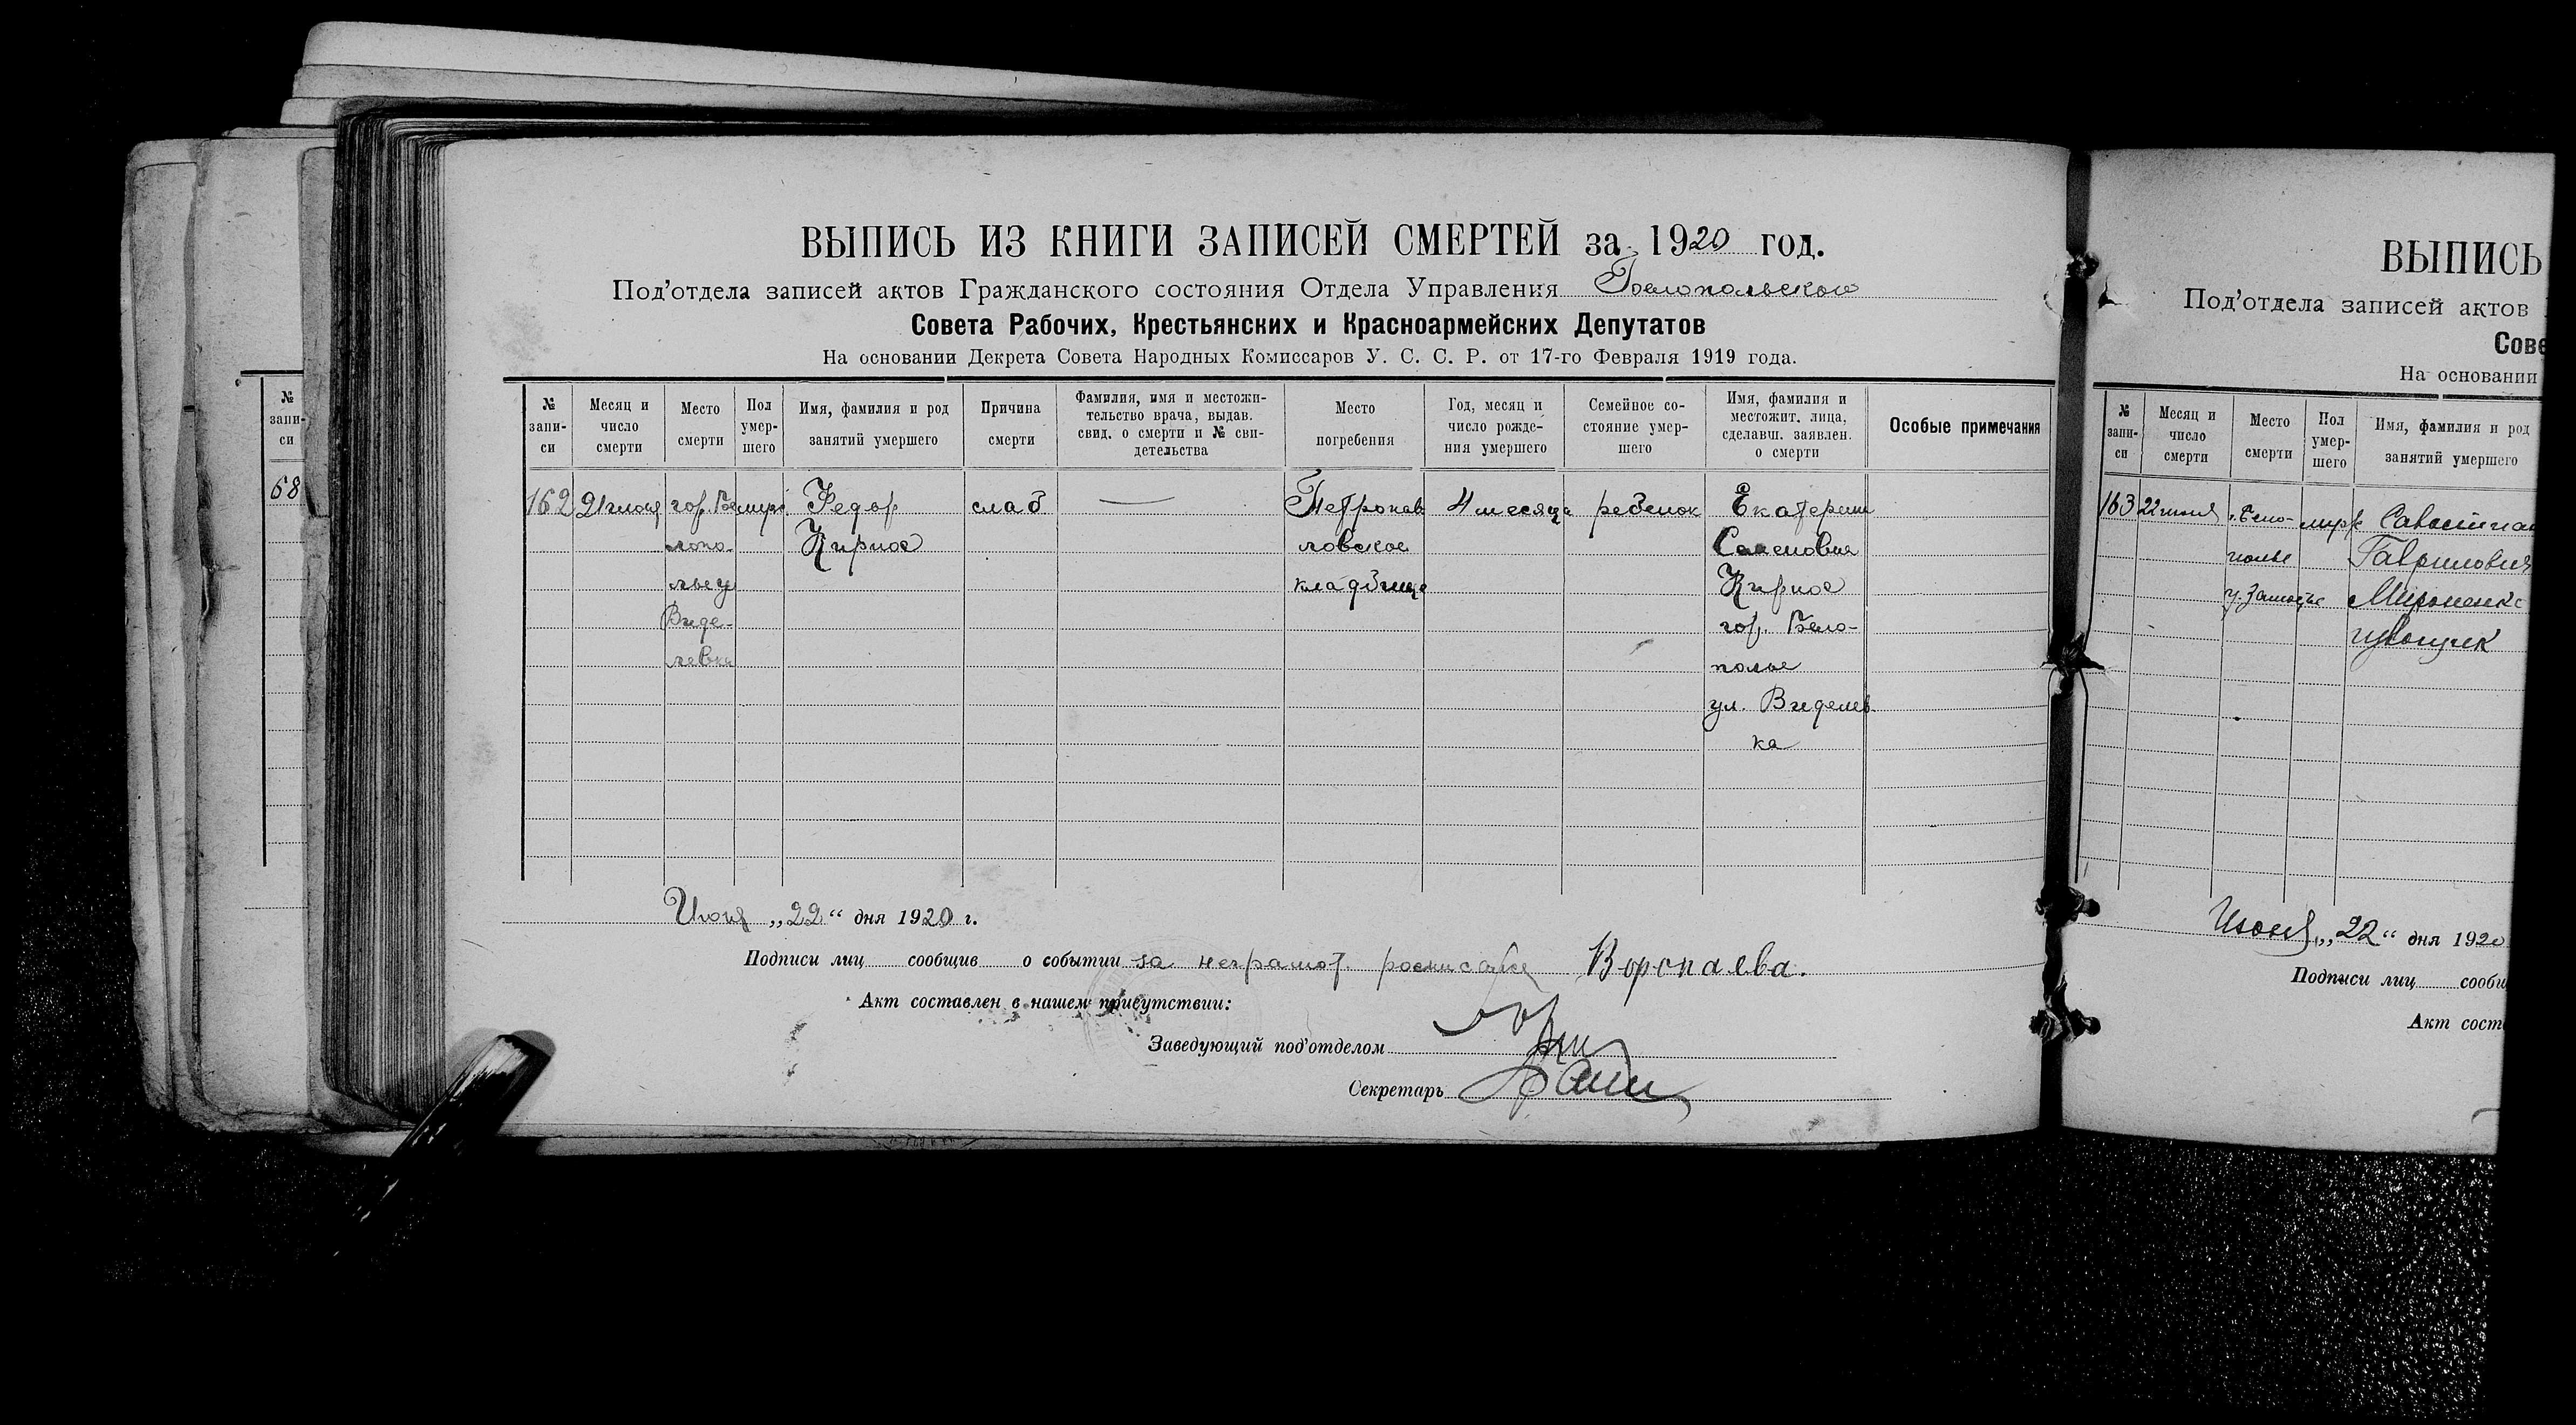 ВЫПИСЬ ИЗ КНИГИ ЗАПИСЕЙ СМЕРТЕЙ за 1920 год.
Под'отдела записей актов Гражданского состояния Отдела Управления Белопольского
Совета Рабочих, Крестьянских и Красноармейских Депутатов
На основании Декрета Совета Народных Комиссаров У. С. С. Р. от 17-го Февраля 1919 года.
№ запи-си
Месяц и число смерти
Место смерти
Пол умер-шего
Имя, фамилия и род занятий умершего
Причина смерти
Фамилия, имя и местожи-тельство врача, выдав. свид. о смерти и № сви-детельства
Место погребения
Год, месяц и число рожде-ния умершего
Семейное со-стояние умер-шего
Имя, фамилия и местожит. лица, сделавш. заявлен. о смерти
Особые примечания
162 21 июня гор. Бе муж Федор слаб — Петропав 4 месяца ребенок Екатерина
лопо- Кирное ловское Семеновна
лье у кладбище Кирное
Виде- гор. Бело-
левка полье
ул. Виделев
ка
Июня „22“ дня 1920 г.
Подписи лиц сообщив о событии за неграмот. росписалсь Воропаева.
Акт составлен в нашем присутствии:
Заведующий под'отделом
Секретарь
№
запи-
си
68
ВЫПИСЬ
Под'отдела записей актов
Сове
На основании
№ запи-си
Месяц и число смерти
Место смерти
Пол умер-шего
Имя, фамилия и род занятий умершего
163 22 июня г. Бело- муж
полье Гаврилович
Мироненко
Июня „22“ дня 1920
Подписи лиц сообщ
Акт соста